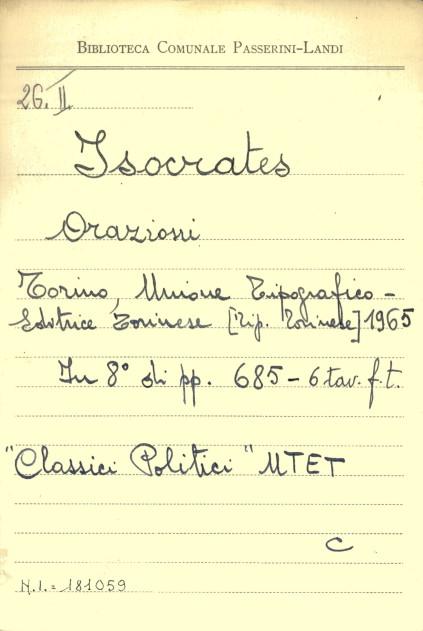 BIBLIOTECA COMUNALE PASSERINI-LANDI
26. II.
Isocrates
Orazioni
Torino, Unione Tipografico -
Editrice Torinese [Tip. Torinese] 1965
In 8° di pp. 685 - 6 tav. f.t.
"Classici Politici" UTET
C
N.I.= 181059